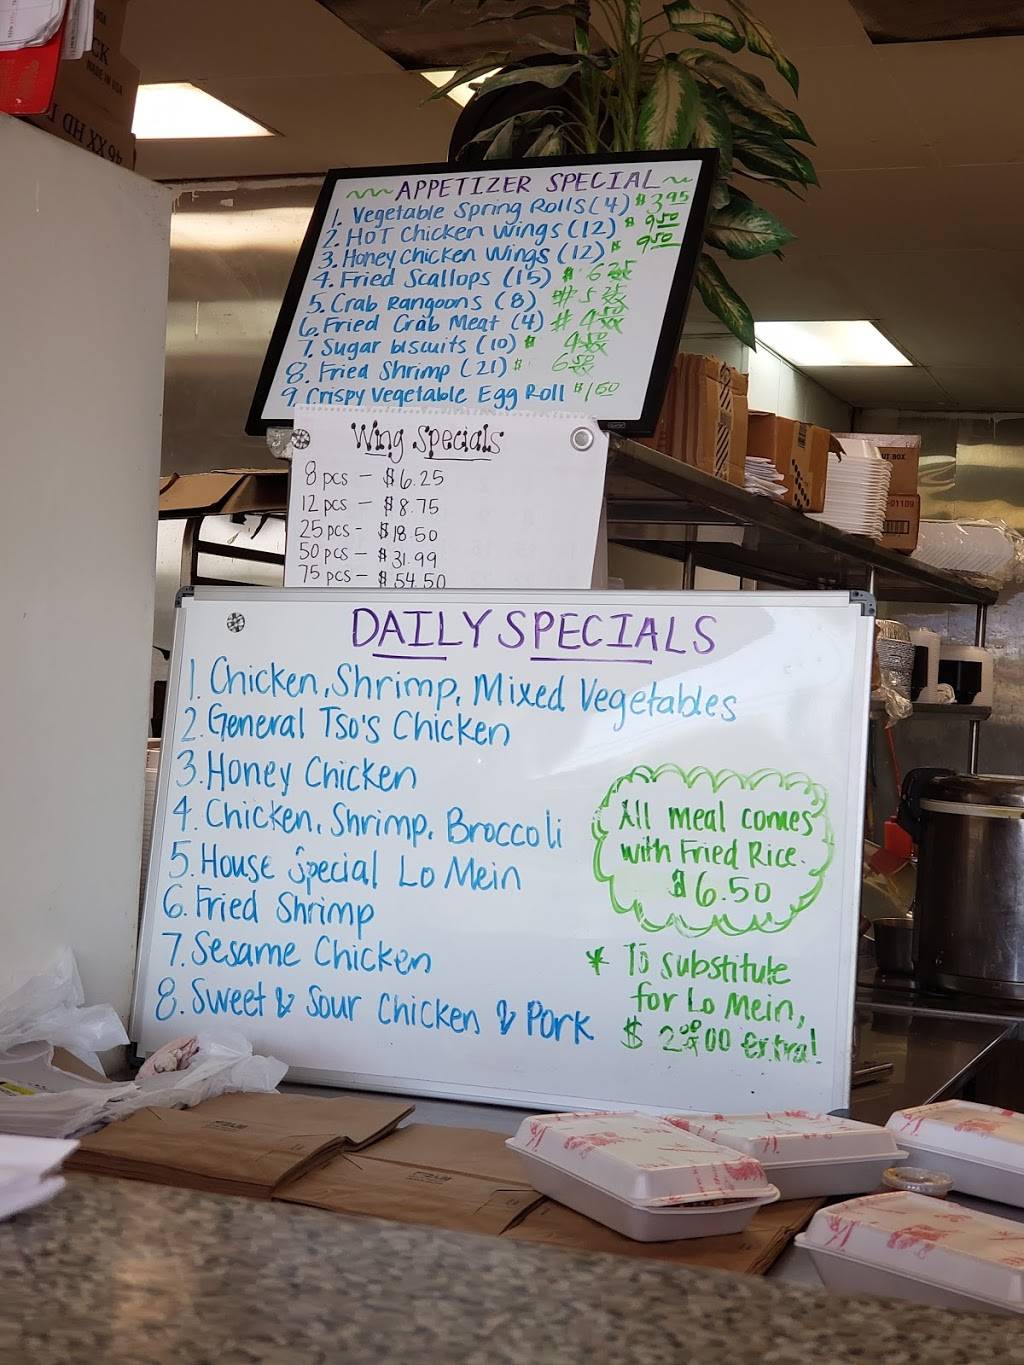 APPETIZER SPECIAL
1. Vegetable Spring Rolls (4) $3.95
2. HOT Chicken Wings (12) $ 9.50
3. Honey Chicken Wings (12) $ 9.50
4. Fried Scallops (15) $ 6
5. Crab Rangoons (8) $ 5
6. Fried Crab Meat (4) $ 4
7. Sugar biscuits (10) $ 4
8. Fried Shrimp (21) $ 6
9. Crispy Vegetable Egg Roll $1.50
Wing Specials
8 pcs - $6.25
12 pcs - $8.75
25 pcs - $18.50
50 pcs - $31.99
75 pcs - $54.50
DAILY SPECIALS
1. Chicken, Shrimp, Mixed Vegetables
2. General Tso's Chicken
3. Honey Chicken
4. Chicken, Shrimp, Broccoli
5. House Special Lo Mein
6. Fried Shrimp
7. Sesame Chicken
8. Sweet & Sour Chicken & Pork
All meal comes
with Fried Rice.
$6.50
* To substitute
for Lo Mein,
$ 2.00 extra!